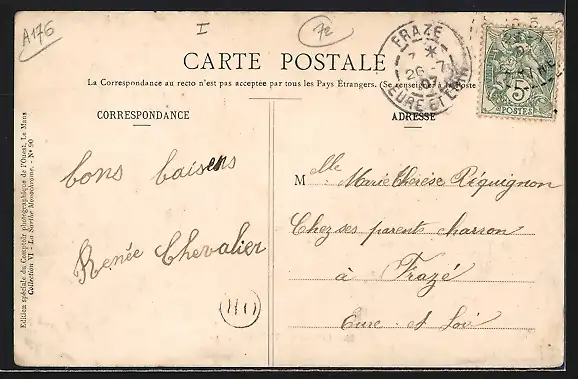 A176
I
72
CARTE POSTALE
La Correspondance au recto n'est pas acceptée par tous les Pays Étrangers. (Se renseigner à la Poste
CORRESPONDANCE
ADRESSE
FRAZÉ
EURE ET LOIR
5c
POSTES
bons baisers
Renée Chevalier
Melle Marie Thérèse Péquignon
Chez ses parents charron
à Frazé
Eure et Loir
Edition spéciale du Comptoir photographique de l'Ouest, Le Mans
Collection VI - La Sarthe Monochrome. - N° 90